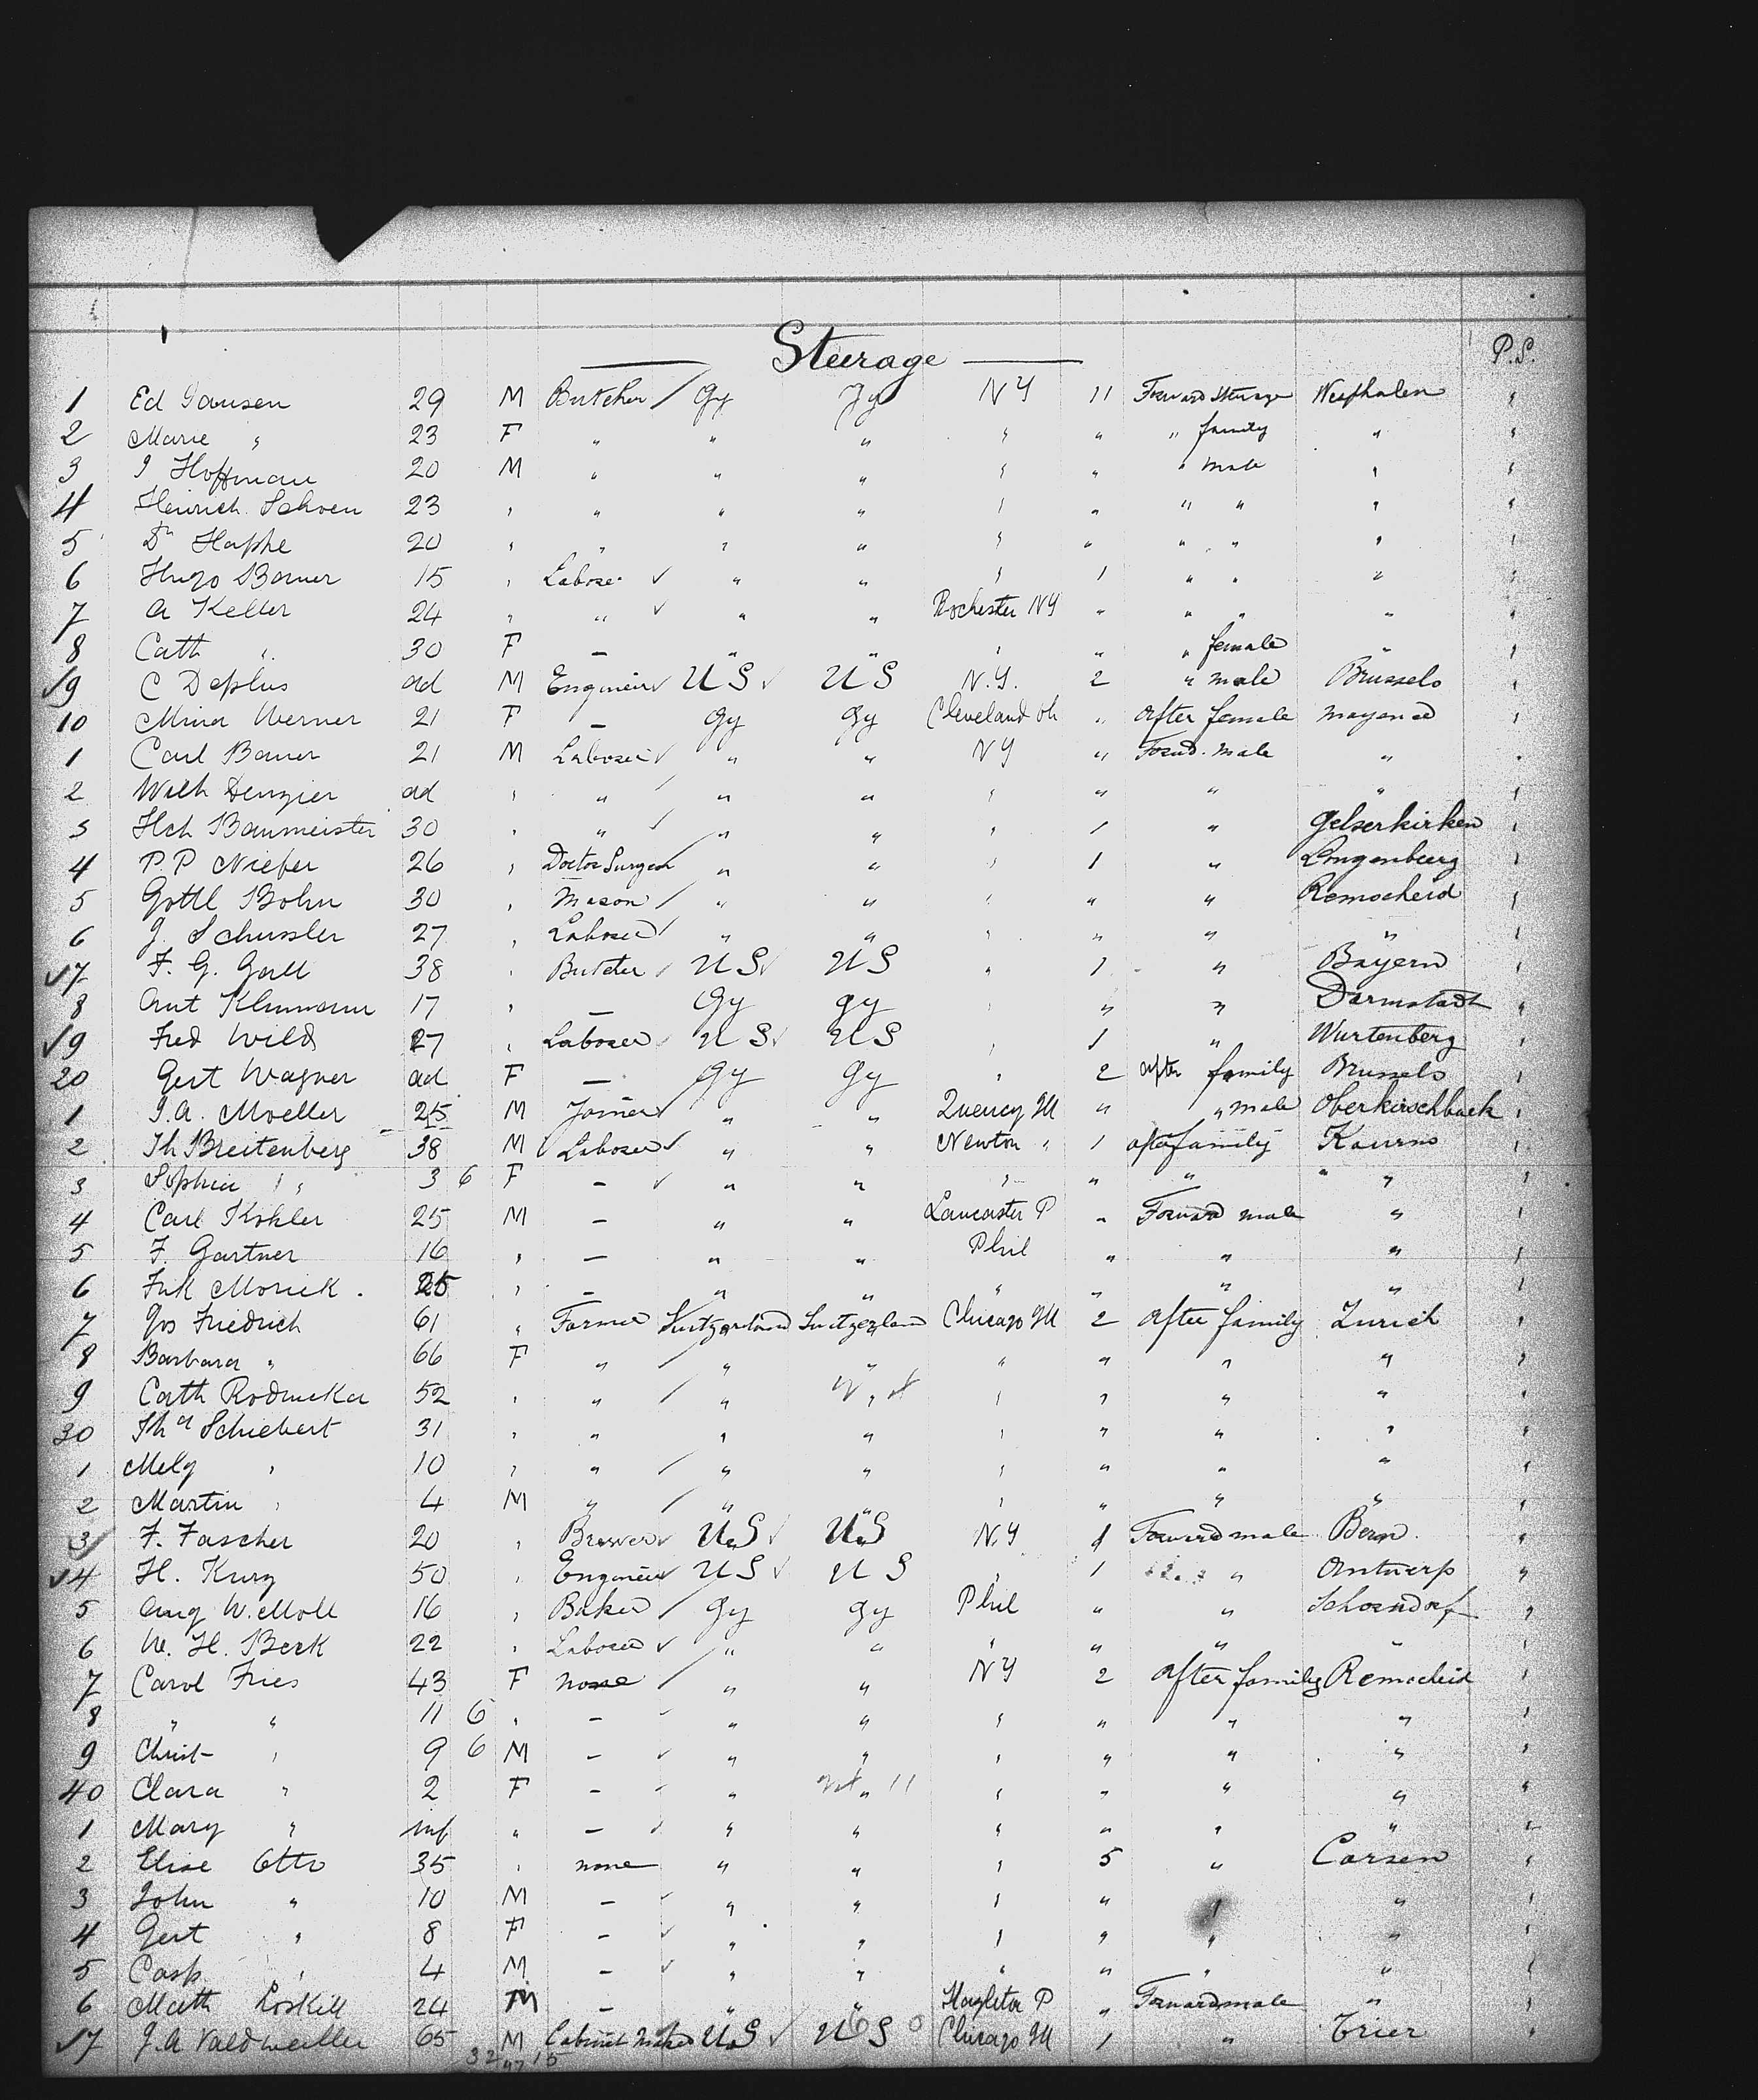 Steerage
P.S.
1 Ed Jansen 29 M Butcher / Gy Gy NY 11 Forward Steerage Wesphalen "
2 Marie " 23 F " " " " " " family " "
3 J Hoffman 20 M " " " " " " male " "
4 Heinrich Schoen 23 " " " " " " " " " "
5 Dr Haphe 20 " " " " " " " " " "
6 Hugo Bauer 15 " Laborer ✓ " " " 1 " " " "
7 A Keller 24 " " ✓ " " Rochester NY " " " " "
8 Cath " 30 F — " " " " " female " "
✓9 C Deplus ad M Engineer ✓ US ✓ US N.Y. 2 " male Brussels "
10 Mina Werner 21 F — Gy Gy Cleveland Oh " After female Mayence "
1 Carl Bauer 21 M Laborer ✓ " " NY " Forwd. male " "
2 Wilh Denzier ad " " / " " " " " " "
3 Hch Baumeister 30 " " ✓ " " " 1 " Gelserkirken "
4 P.P Niefer 26 " Doctor Surgeon " " " 1 " Longenburg "
5 Gottl Bohn 30 " Mason / " " " " " Remscheid "
6 J. Schussler 27 " Laborer / " " " " " " "
✓7 F. G. Gall 38 " Butcher ✓ US ✓ US " 1 " Bayern "
8 Ant Klumann 17 " — Gy Gy " " " Darmstadt "
✓9 Fred Wild 27 " Laborer ✓ US ✓ US " 1 " Wurtenberg "
20 Gert Wagner ad F — Gy Gy " 2 After family Brussels "
1 J.A. Moeller 25 M Joiner / " " Quency Ill " " male Oberkirschback "
2 Th Breitenberg 38 M Laborer ✓ " " Newton " 1 After family Kaurns "
3 Sophia " 3 6 F — ✓ " " " " " " "
4 Carl Kohler 25 M — " " Lancaster P " Forward male " "
5 F. Gartner 16 " — " " Phil " " " "
6 Frk Morick. 25 " — " " " " " " "
7 Jos Friedrich 61 " Farmer Switzerland Switzerland Chicago Ill 2 After family Zurich "
8 Barbara " 66 F " / " " " " " " "
9 Cath Roducka 52 " " / " " " " " " "
30 Tha Schiebert 31 " " " " " " " " "
1 Mely " 10 " " / " " " " " " "
2 Martin " 4 M " / " " " " " " "
3 F. Fascher 20 " Brewer ✓ US ✓ US N.Y 1 Forward male Bern. "
✓4 H. Kurz 50 " Engineer US ✓ US " 1 " Antwerp "
5 Aug W. Moll 16 " Baker / Gy Gy Phil " " Schorndorf "
6 W. H. Berk 22 " Laborer ✓ " " " " " " "
7 Carol Fries 43 F none / " " NY 2 After family Remscheid "
8 " " 11 6 " — " " " " " " "
9 Christ " 9 6 M — ✓ " " " " " " "
40 Clara " 2 F — " " 11 " " " " "
1 Mary " inf " — " " " " " " "
2 Elise Otto 35 " none " " " 5 " Carsen "
3 John " 10 M — " " " " " " "
4 Gert " 8 F — ✓ " " " " " " "
5 Casp " 4 M — ✓ " " " " " " "
6 Math Loskill 24 M — " " Hazleton P " Forward male " "
✓7 J.A Valdweiller 65 M Cabinet Maker US ✓ US Chicago Ill 1 " Trier "
32 47 15